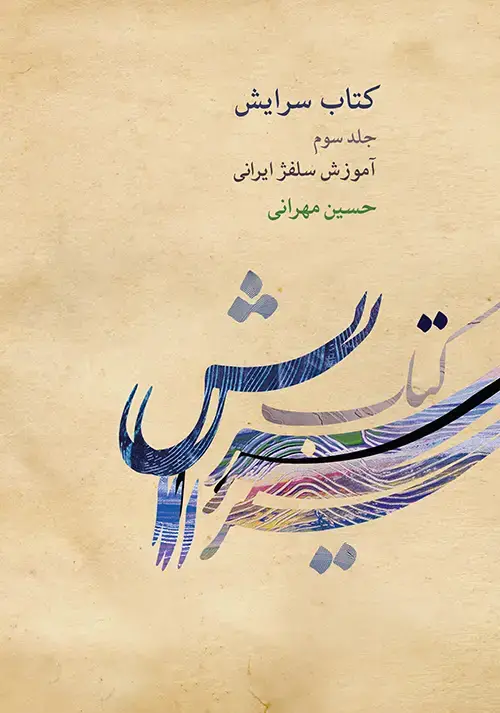 کتاب سرایش
جلد سوم
آموزش سلفژ ایرانی
حسین مهرانی
کتاب
سرایش